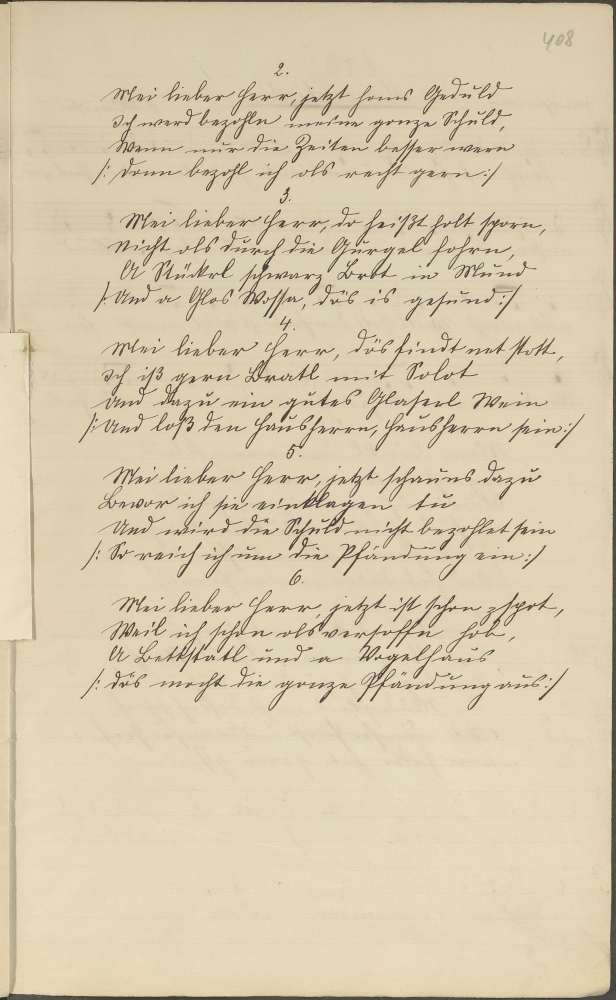 408
2.
Mei lieber Herr, jetzt homs Geduld
Ich werd bezohln meine gonze Schuld,
Wenn nur die Zeiten besser wern
/: Donn bezohl ich ols recht gern :/
3.
Mei lieber Herr, do heißt holt sporn,
Nicht ols durch die Gurgel fohrn,
A Stückl schwarz Brot in Mund
/: Und a Glos Wossa, dös is gesund :/
4.
Mei lieber Herr, dös findt net stott,
Ich iß gern Bratl mit Solot
Und dazu ein gutes Glaserl Wein
/: Und loß den Hausherrn, Hausherrn sein :/
5.
Mei lieber Herr, jetzt schauns dazu
Bevor ich sie einklagen tu
Und wird die Schuld nicht bezohlet sein
/: So reich ich um die Pfändung ein :/
6.
Mei lieber Herr, jetzt ist schon zspot,
Weil ich schon ols versoffn hob,
A Bettstatl und a Vogelhaus
/: dös mocht die gonze Pfändung aus :/